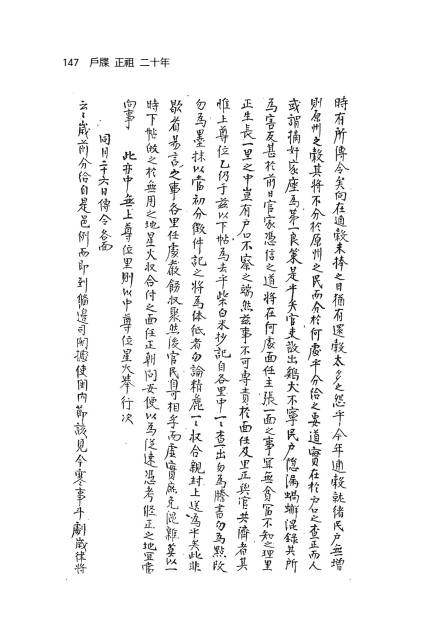 147 戶牒 正祖 二十年
時有所傳令矣向在逋穀未捧之日猶有還穀太多之怨乎今年逋穀就緒民戶無增
則原州之穀其將不分於原州之民而分於何處乎分給之要道實在於戶口之查正而人
或謂摘奸家座爲第一良策是乎矣官吏散出鷄犬不寧民戶隱漏蝸蠏混錄其所
爲害反甚於前日官家憑信之道將在何處面任主張一面之事里無貧富不知之理里
正生長一里之中豈有戶口不察之端然茲事不可專責於面任及里正與官共濟者其
惟上尊位乙仍于茲以下帖爲去乎柴白米抄記自各里中一一查出勿爲謄書勿爲點改
勿爲墨抹以當初分徵件記之將爲休紙者勿論精麁一一收合親封上送爲乎矣此非
歇看易言之事各里任處嚴飭收聚然後官民自可相孚而虛實庶免混雜莫以一
時下帖做之於無用之地星火收合付之面任正朝問安便以爲從速憑考釐正之地宜當
向事 此亦中無上尊位里則以中尊位星火擧行次
同月二十六日傳令各面
云云歲前分給自是邑例而卽到備邊司關據使關內節該見今寒事斗劇歲律將